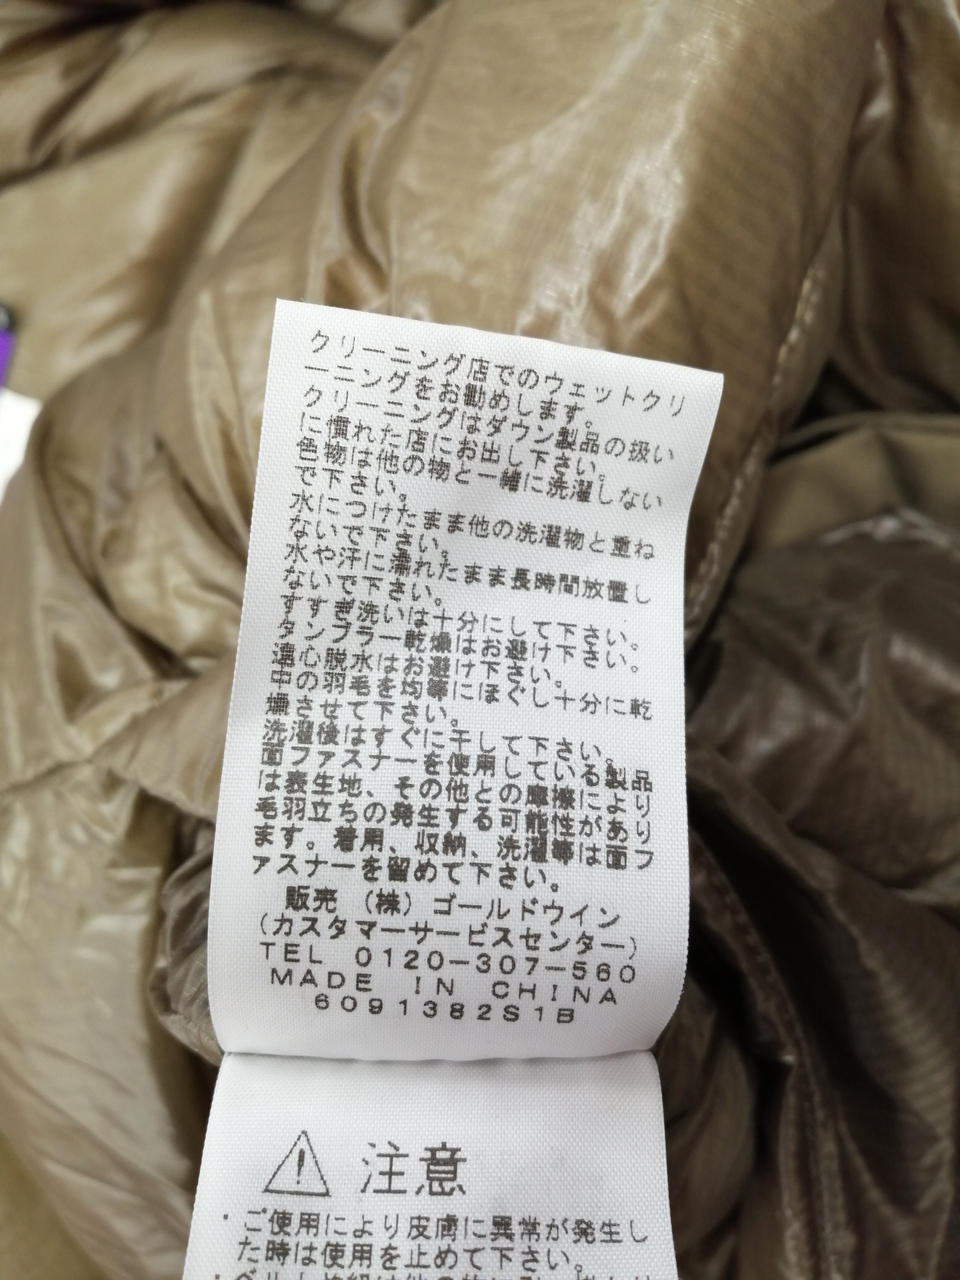 クリーニング店でのウェットクリ
ーニングをお勧めします。
クリーニングはダウン製品の扱い
に慣れた店にお出し下さい。
色物は他の物と一緒に洗濯しない
で下さい。
水につけたまま他の洗濯物と重ね
ないで下さい。
水や汗に濡れたまま長時間放置し
ないで下さい。
すすぎ洗いは十分にして下さい。
タンブラー乾燥はお避け下さい。
遠心脱水はお避け下さい。
中の羽毛を均等にほぐし十分に乾
燥させて下さい。
洗濯後はすぐに干して下さい。
面ファスナーを使用している製品
は表生地、その他との摩擦により
毛羽立ちの発生する可能性があり
ます。着用、収納、洗濯等は面フ
ァスナーを留めて下さい。
販売 (株)ゴールドウイン
(カスタマーサービスセンター)
TEL 0120-307-560
MADE IN CHINA
6091382S1B
注意
・ご使用により皮膚に異常が発生し
た時は使用を止めて下さい。